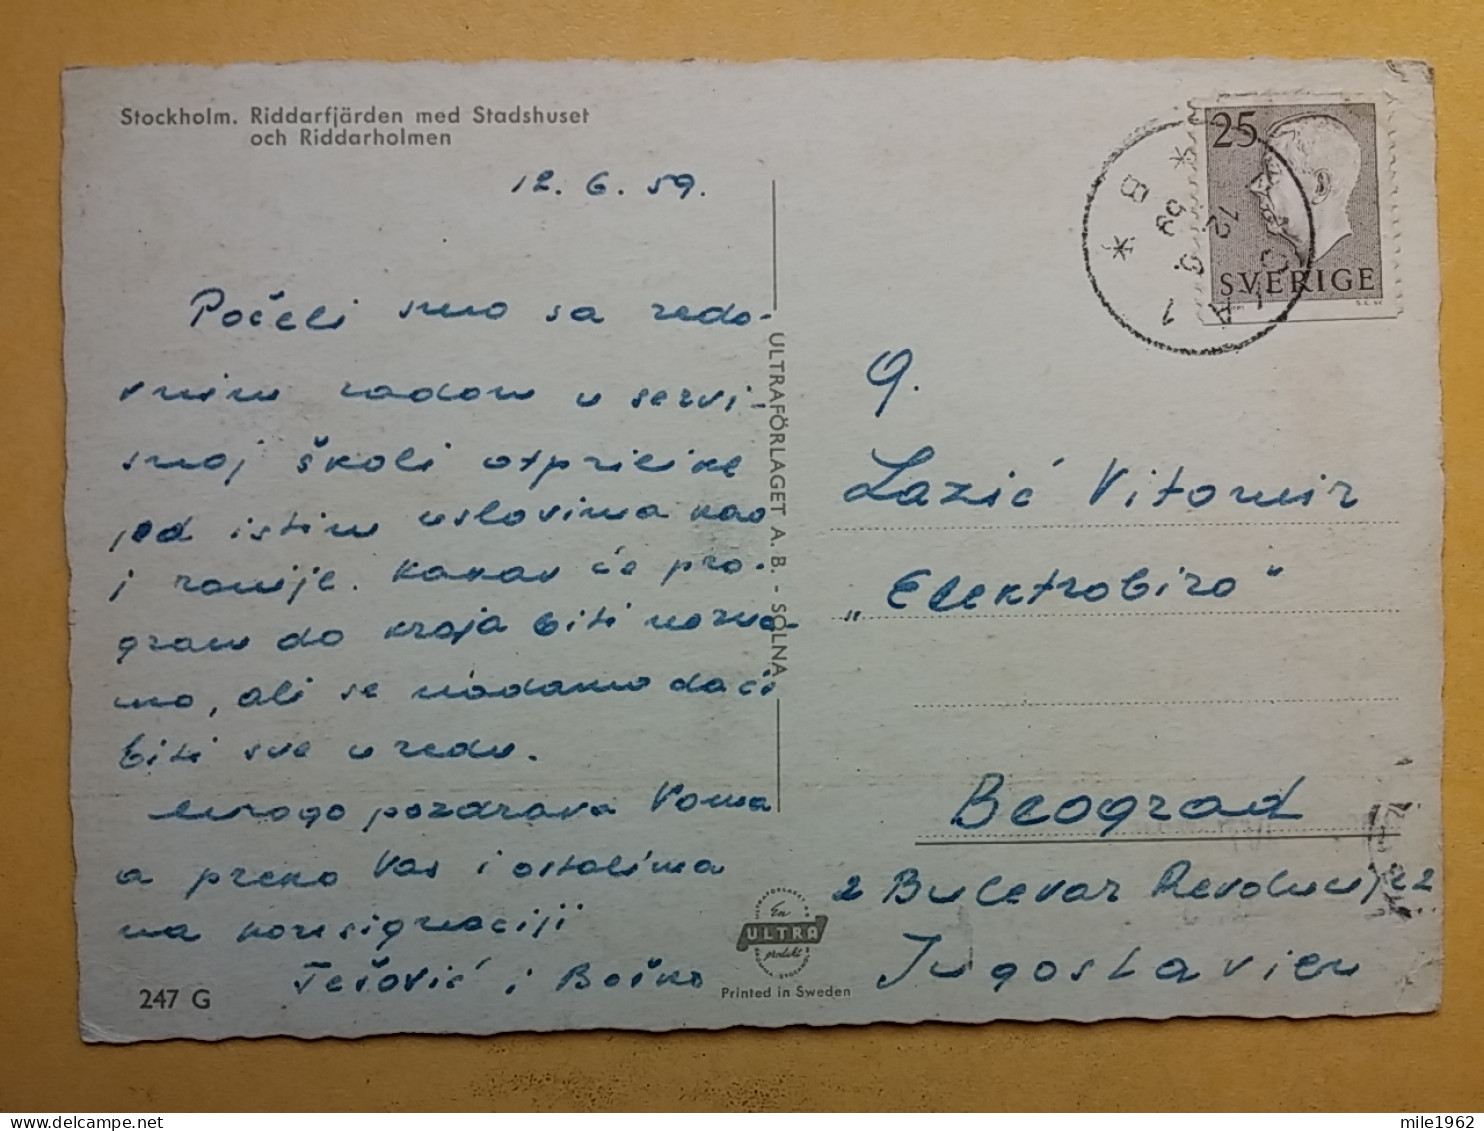 Stockholm. Riddarfjärden med Stadshuset
och Riddarholmen
12. 6. 59.
Počeli smo sa redo-
vnim radom u servi-
snoj školi otprilike
pod istim uslovima kao
i ranije. Kakav će pro-
gram do kraja biti nezna-
mo, ali se nadamo da će
biti sve u redu.
Mnogo pozdrava Vama
a preko Vas i ostalima
na konsignaciji
Tešović i Boško
247 G
ULTRAFÖRLAGET A. B. - SOLNA
En
ULTRA
produkt
Printed in Sweden
25
SVERIGE
B
1
g.
Lazić Vitomir
„Elektrobiro"
Beograd
2 Bulevar Revolucije 2
Jugoslavien
mile1962